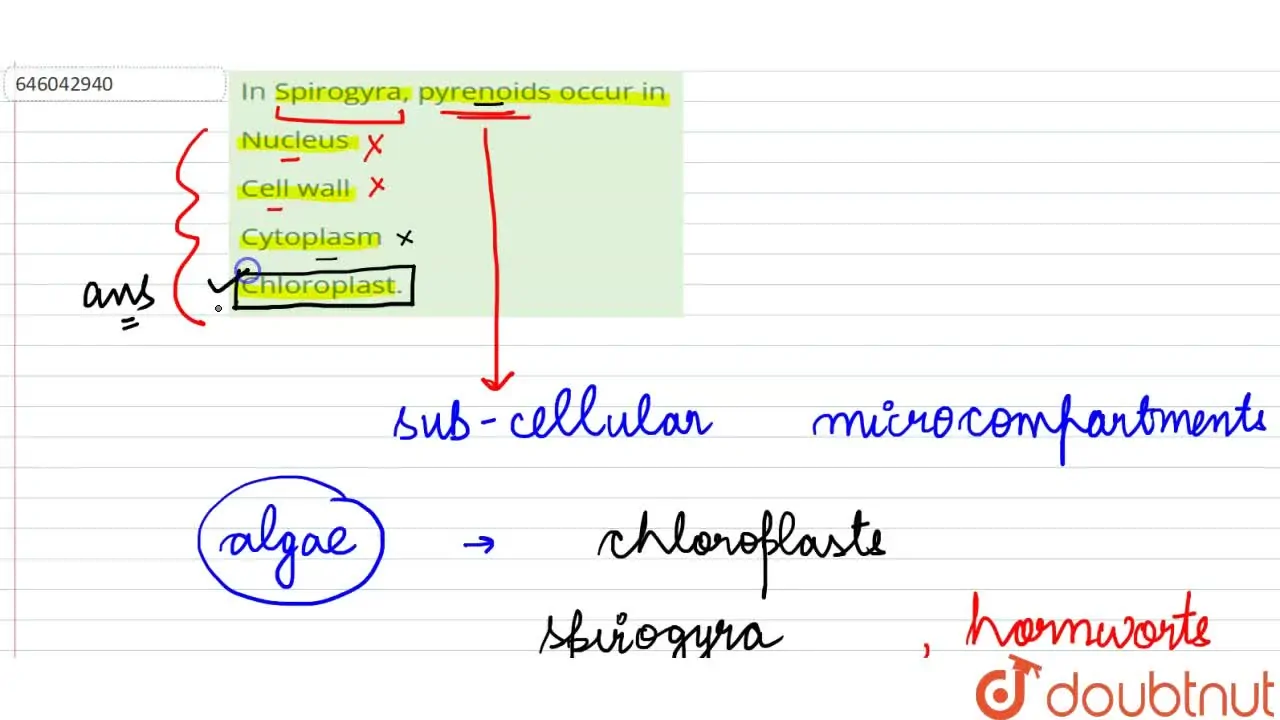 646042940
In Spirogyra, pyrenoids occur in
Nucleus x
Cell wall x
Cytoplasm x
ans ✓ Chloroplast.
sub-cellular microcompartments
algae → chloroplasts
spirogyra, hornworts
doubtnut